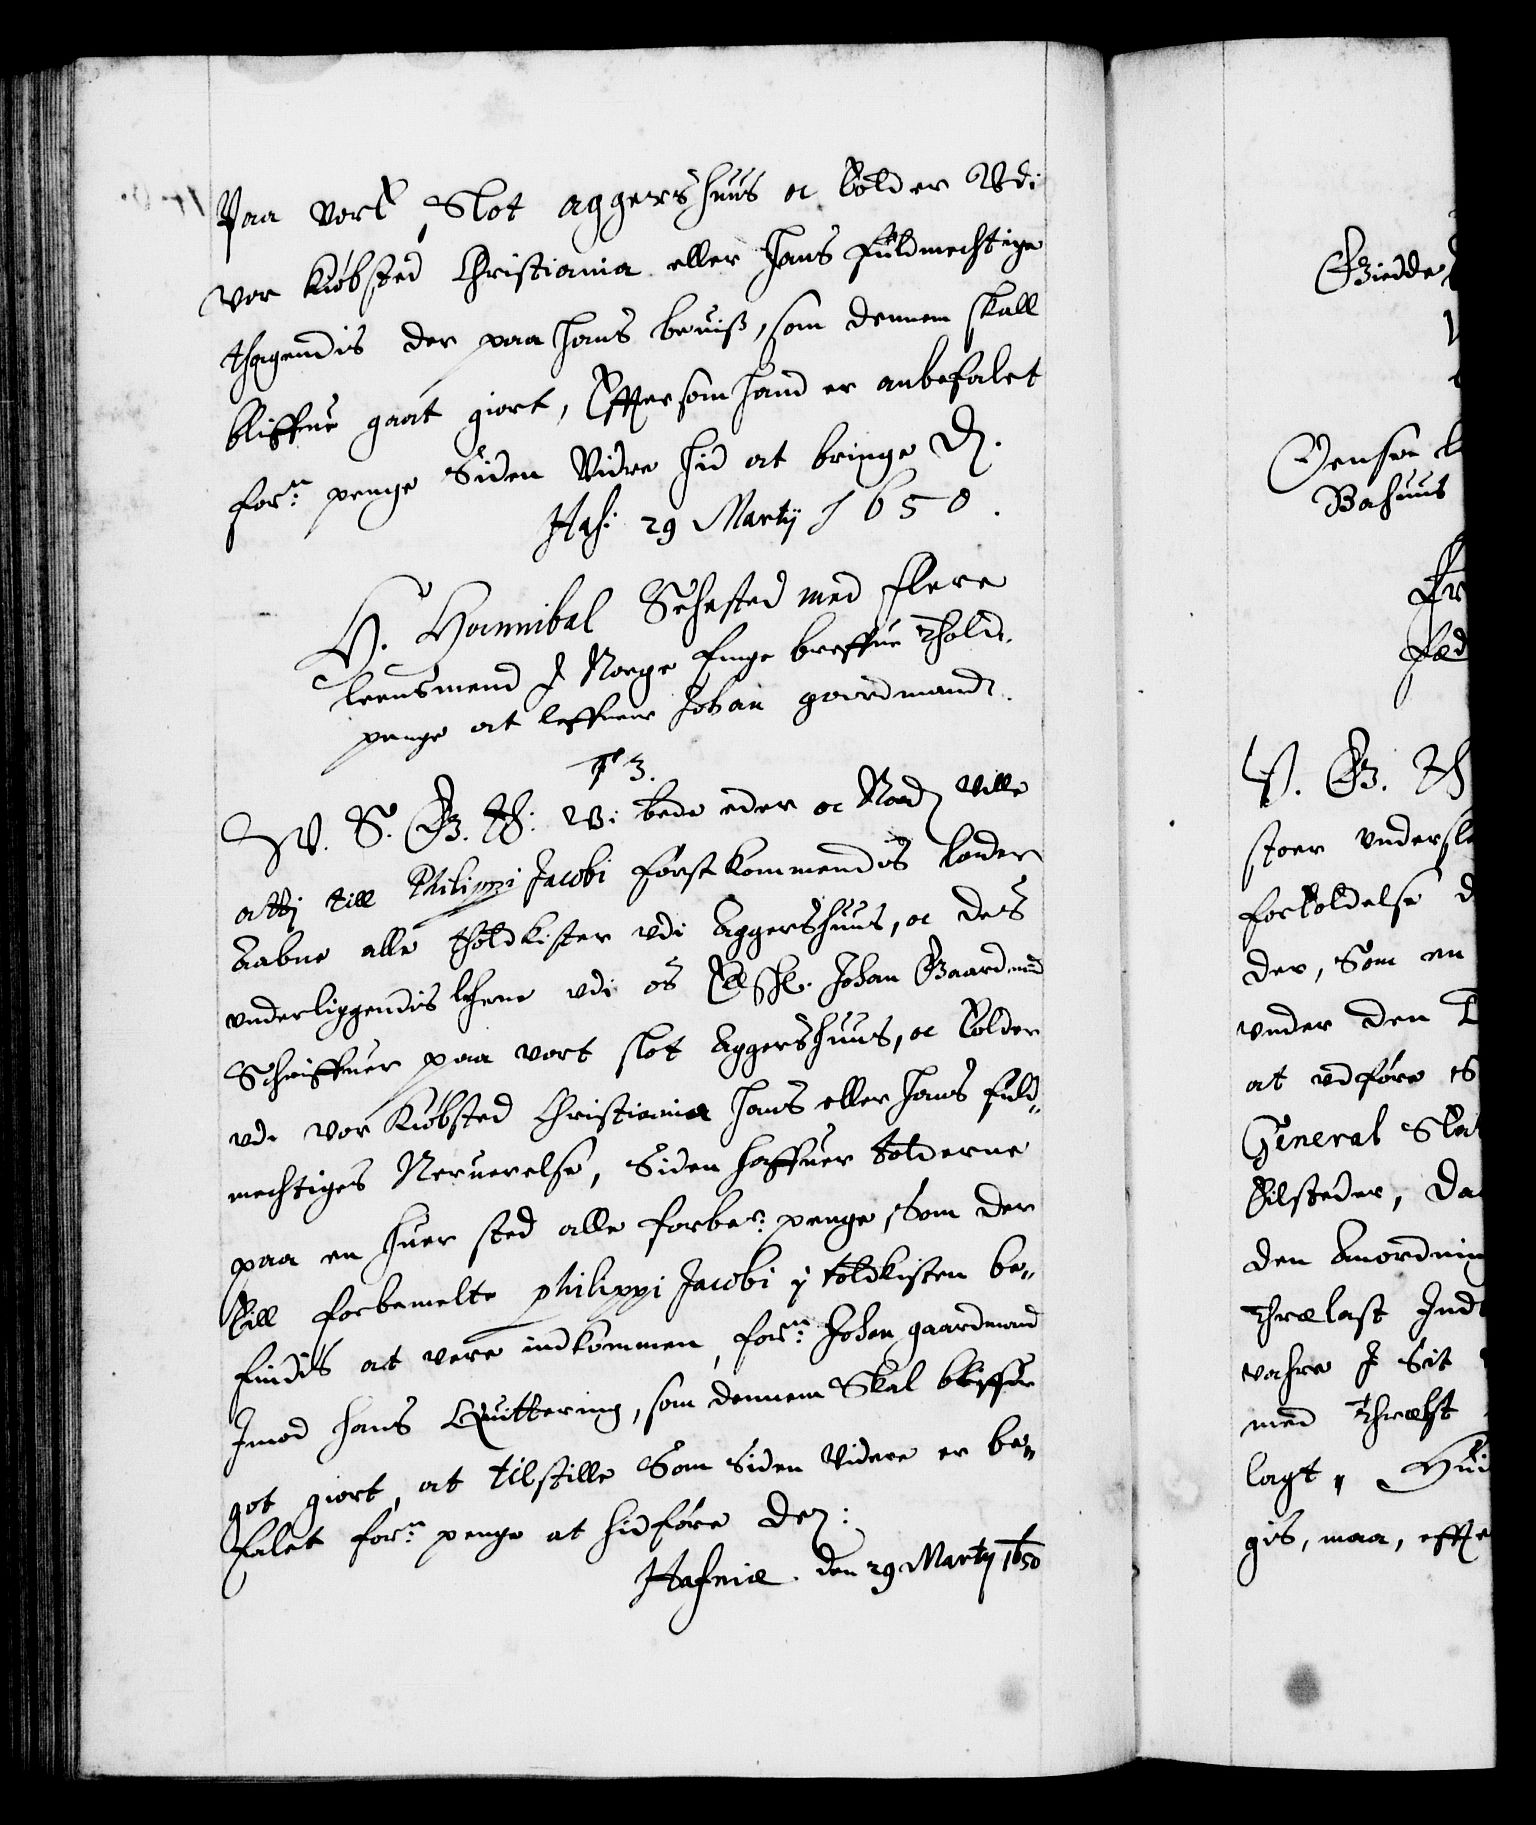 Paa vort Slot aggershuus oc tolder Vdi
vor Kiøbsted Christiania eller hans fuldmechtige
thagendis der paa hans beuiss, som dennem skall
bliffue gaat giort, Efftersom hand er anbefalet
forne penge Siden Vidre hid at bringe D.
Haf: 29 Martij 1650.
H. Hannibal Sehested med flere
leensmend I Norge finge breffue Thold
penge at leffuere Johan gaardmand.
T 3.
W. S. G. T: Vi bede eder oc Naad. Ville
atI till Philippi Jacobi førstkommendis lader
Aabne alle tholdkister vdi Aggershuus, oc des
vnderliggendis lehne vdi os Elskl. Johan Gaardmand
Schriffuer paa vort slot Aggershuus, oc tolder
vdi vor Kiøbsted Christiania hans eller hans fuld
mechtiges Neruerelse, Siden haffuer tolderne
paa en huer sted alle forbete penge, som der
till forbemelte philippi Jacobi i toldkisten be
findis at vere indkommen, forne Johan gaardmand
Imod hans Quittering, som dennem Skal bliffue
got giort, at tilstille Som Siden Videre er be
falet forne penge at hidføre Der:
Hafniæ. den 29 Martij 1650
Giedde
Jensen
Bahuus
V. G. T
stoer vndersl
forholdelse d
der, Som en
vnder den
at vdføre
General Slat
tilsteder, da
den Anordning
Thrælast Ind
vahre I Sit
med Thrælast
lagt,
gis, maa, effte